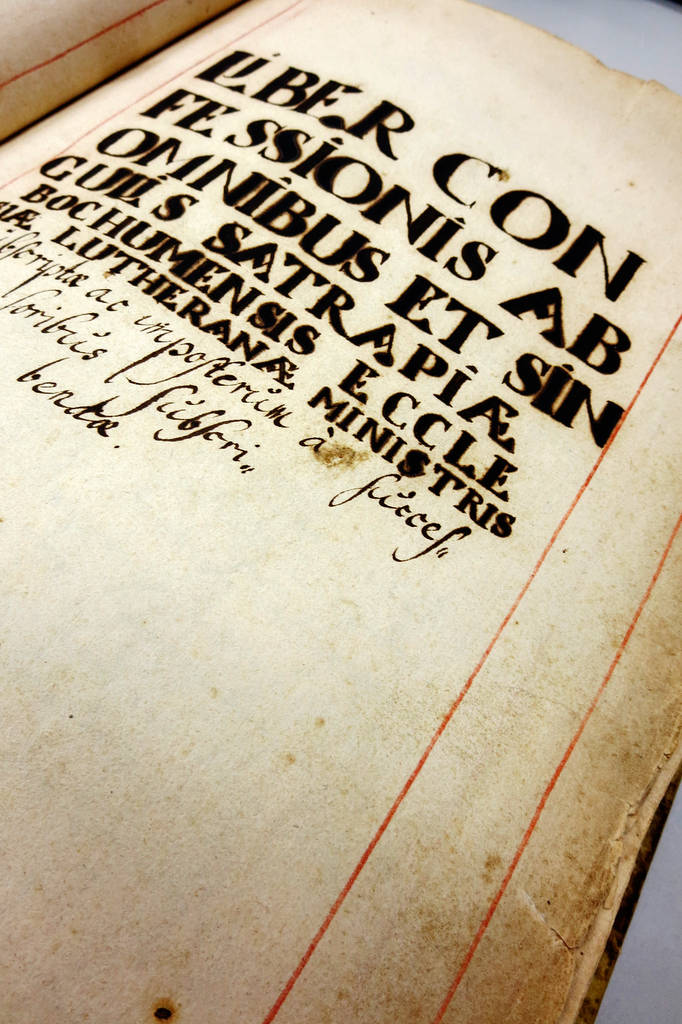 LIBER CON
FESSIONIS AB
OMNIBUS ET SIN
GULIS SATRAPIÆ
BOCHUMENSIS ECCLE
SIÆ LUTHERANÆ MINISTRIS
subscriptæ ac imposterum à succes"
soribus subscri"
bendæ.